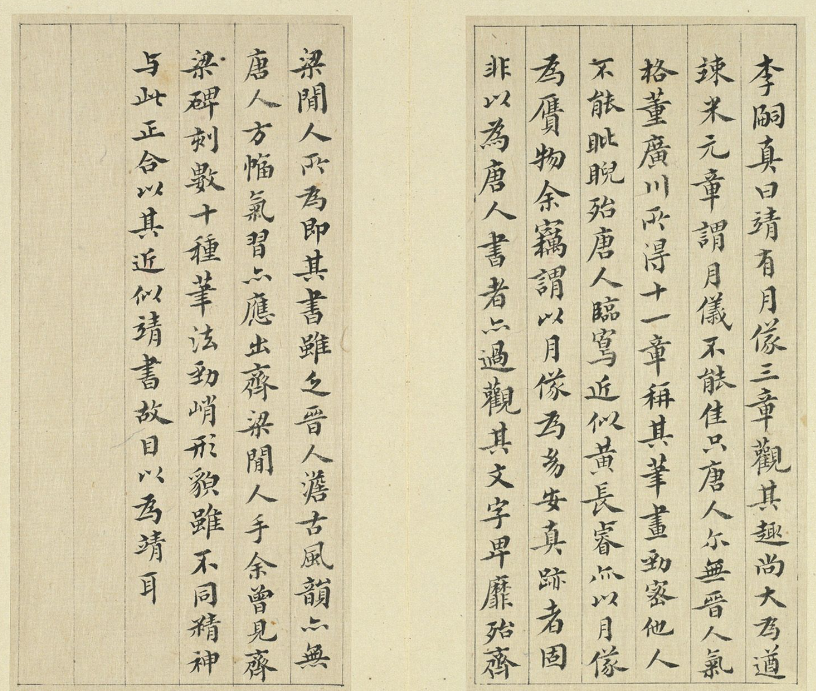 李嗣真曰靖有月儀三章觀其趣尚大為遒
竦米元章謂月儀不能佳只唐人尒無晉人氣
格董廣川所得十一章稱其筆畫勁密他人
不能睥睨殆唐人臨寫近似黃長睿亦以月儀
為贗物余竊謂以月儀為㓜安真跡者固
非以為唐人書者亦過觀其文字卑靡殆齊
梁間人所為即其書雖乏晉人澹古風韻亦無
唐人方幅氣習亦應出齊梁間人手余曾見齊
梁碑刻數十種筆法勁峭形貌雖不同精神
与此正合以其近似靖書故目以為靖耳